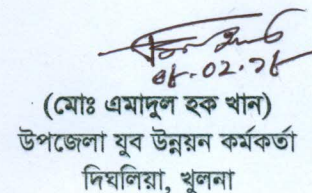 (মোঃ এমাদুল হক খান)
উপজেলা যুব উন্নয়ন কর্মকর্তা
দিঘলিয়া, খুলনা